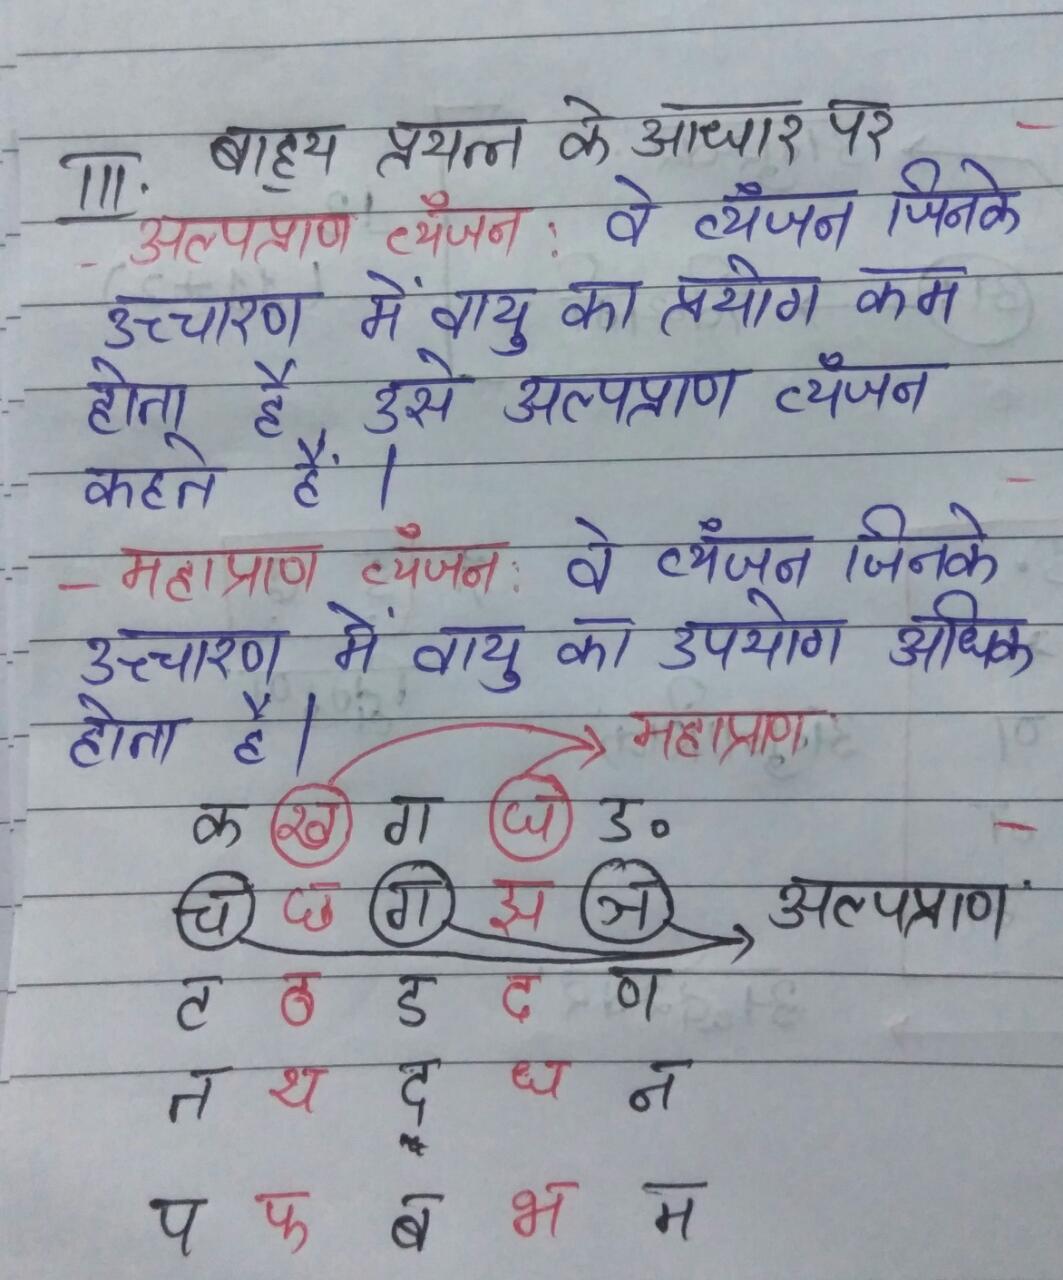 III. बाह्य प्रयत्न के आधार पर
- अल्पप्राण व्यँजन : वे व्यँजन जिनके
उच्चारण में वायु का प्रयोग कम
होता है, उसे अल्पप्राण व्यँजन
कहते हैं।
- महाप्राण व्यँजन : वे व्यँजन जिनके
उच्चारण में वायु का उपयोग अधिक
होता है।
महाप्राण
क ख ग घ ङ
च छ ग झ ञ अल्पप्राण
ट ठ ड द ण
त थ द ध न
प फ ब भ म